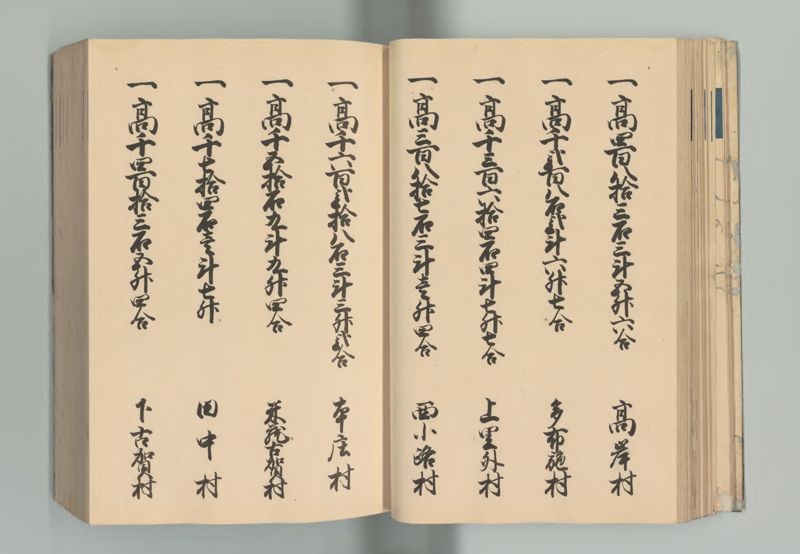 一高四百八拾三石三斗五升六合 高岸村
一高千弐百八石弐斗六升七合 多布施村
一高千三百六拾四石四斗七升七合 上里外村
一高三百八拾七石三斗壱升四合 西小路村
一高千六百弐拾八石三斗三升弐合 本庄村
一高千五拾石九斗九升四合 古賀村
一高千七拾四石壱斗七升 田中村
一高千四百拾三石五升四合 下古賀村